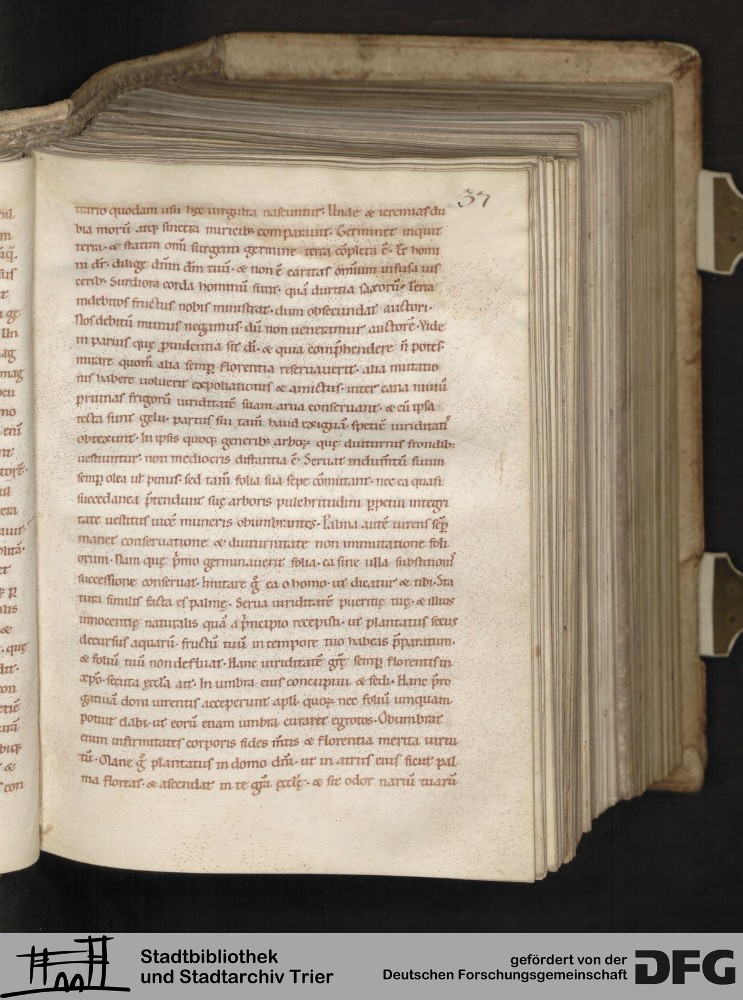 37
nario quodam usu hęc uirgulta nascuntur. Unde & ieremias du
bia morū atq; sincera miricib; comparauit. Germinet inquit
terra. & statim om̄i surgenti germine terra cōpleta ē. Et homi
ni dr̄. dilige dn̄m dm̄ tuū. & non ē caritas om̄ium infusa uis
cerib;. Surdiora corda hominū sunt. quā duritia saxorū. Terra
indebitos fructus nobis ministrat. dum obsecundat auctori.
Nos debitū munus negamus. dū non ueneramur auctorē. Vide
in paruis quę ꝓuidentia sit dī. & quia comp̄hendere n̄ potes
mirare quom̄ alia semp̲ florentia reseruauerit. alia mutatio
nis habere uoluerit expoliationes & amictus. inter cana niuiū
pruinas frigorū uiriditatē suam arua conseruant. & cū ipsa
tecta sunt gelu. partus sui tam̄ haud exiguā spetiē uiriditatī
obtexunt. In ipsis quoq; generib; arborū quę diuturnis frondib;
uestiuntur. non mediocris distantia ē. Seruat indumtū suum
semp̲ olea uł pinus. sed tam̄ folia sua sepe cōmutant. nec ea quasi
succedanea p̄tendunt suę arboris pulchritudini p̲petui integri
tate uestitus uicē muneris obumbrantes. Palma autē uirens sēp̲
manet conseruatione & diuturnitate non immutatione foli
orum. Nam quę p̄mo germinauerit folia. ea sine ulla substitutionī
successione conseruat. Imitare g̊ ea o homo. ut dicatur & tibi. Sta
tura similis facta es palmę. Serua uiriditatē pueritię tuę. & illius
innocentię naturalis quā a p̄ncipio recepisti. ut plantatus secus
decursus aquarū. fructū tuū in tempore tuo habeas p̄paratum.
& foliū tuū non defluat. Hanc uiriditatē grę̄ semp̲ florentis in
xp̄o. secuta eccła ait. In umbra eius concupiui & sedi. Hanc p̄ro
gatiuā doni uirentis acceperunt apłi. quorū nec foliū umquam
potuit elabi. ut eorū etiam umbra curaret egrotos. Obumbrat
enim infirmitates corporis fides m̄tis & florentia merita uirtu
tū. Mane g̊ plantatus in domo dn̄i. ut in atriis eius sicut pal
ma floreas. & ascendat in te gr̄a eccłę. & sit odor nariū tuarū
Stadtbibliothek
und Stadtarchiv Trier
gefördert von der
Deutschen Forschungsgemeinschaft
DFG